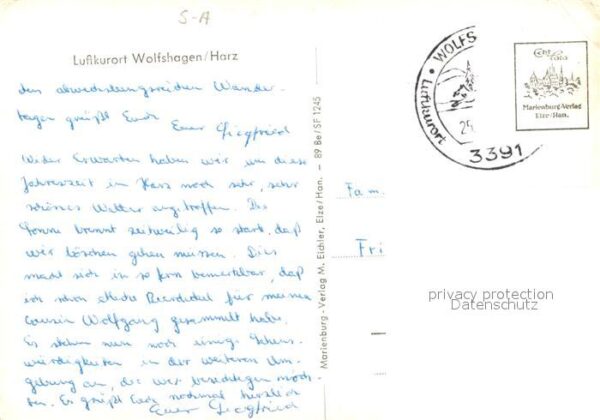 S-A
Luftkurort Wolfshagen/Harz
den abwechslungsreichen Wander-
tagen grüßt Euch
Euer Siegfried
Wider Erwarten haben wir um diese
Jahreszeit im Harz noch sehr, sehr
schönes Wetter angetroffen. Die
Sonne brennt zeitweilig so stark, daß
wir löschen gehen müssen. Dies
macht sich in so fern bemerkbar, daß
ich schon etliche Bierdeckel für meinen
Cousin Wolfgang gesammelt habe.
Es stehen nun noch einige Sehens-
würdigkeiten in der weiteren Um-
gebung an, die wir besichtigen möch-
ten. Es grüßt Euch nochmal herzlich
Euer Siegfried
Marienburg-Verlag M. Eichler, Elze/Han. — 89 Be/SF 1245
WOLFS
Luftkurort
3391
Echt
Foto
Marienburg-Verlag
Elze/Han.
Fam.
Fri
privacy protection
Datenschutz